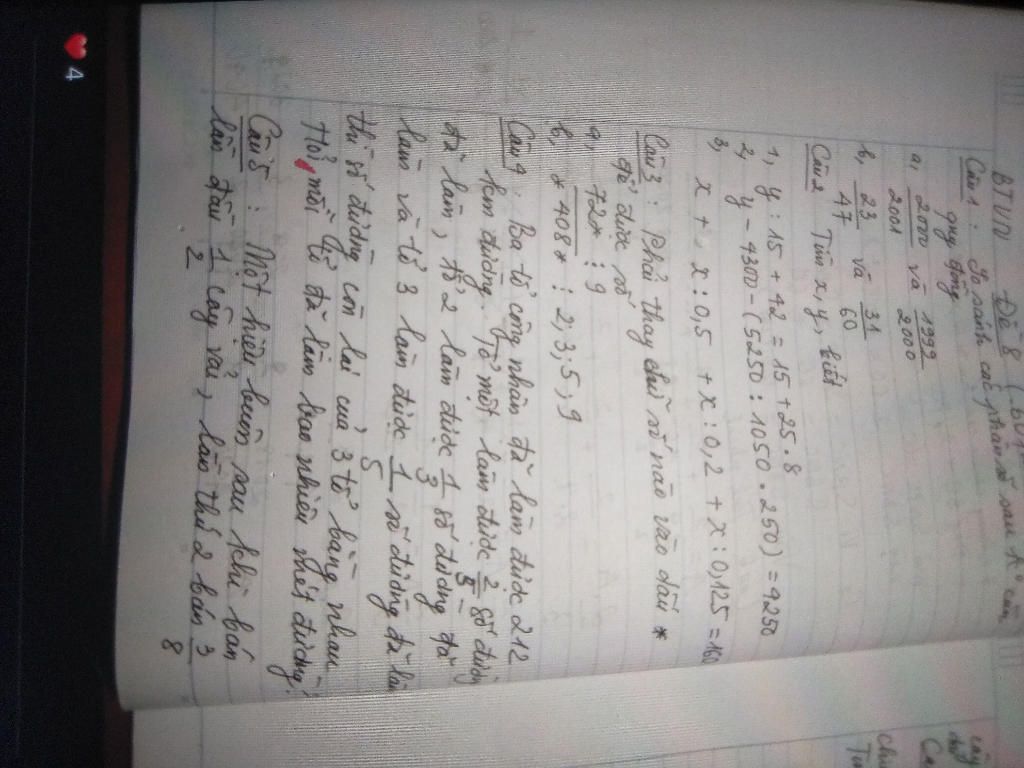 BTVN Đề 8
Câu 1 : So sánh các phân số sau k° cần
quy đồng
a, 2000/2001 và 1999/2000
b, 23/47 và 31/60
Câu 2 Tìm x, y, biết
1, y : 15 + 42 = 15 + 25 . 8
2, y - 4300 - (5250 : 1050 . 250) = 4250
3,
x + , x : 0,5 + x : 0,2 + x : 0,125 = 160
Câu 3 : Phải thay chữ số nào vào dấu *
để được số
a, 72* : 9
b, *408* : 2; 3; 5; 9
Câu 4 : Ba tổ công nhân đã làm được 212
km đường. Tổ một làm được 2/5 số đường
đã làm, tổ 2 làm được 1/3 số đường đã
làm và tổ 3 làm được 1/5 số đường đã làm
thì số đường còn lại của 3 tổ bằng nhau
Hỏi mỗi tổ đã làm bao nhiêu mét đường.
Câu 5 : Một hiệu buôn sau khi bán
lần đầu 1/2 cây vải, lần thứ 2 bán 3/8
4